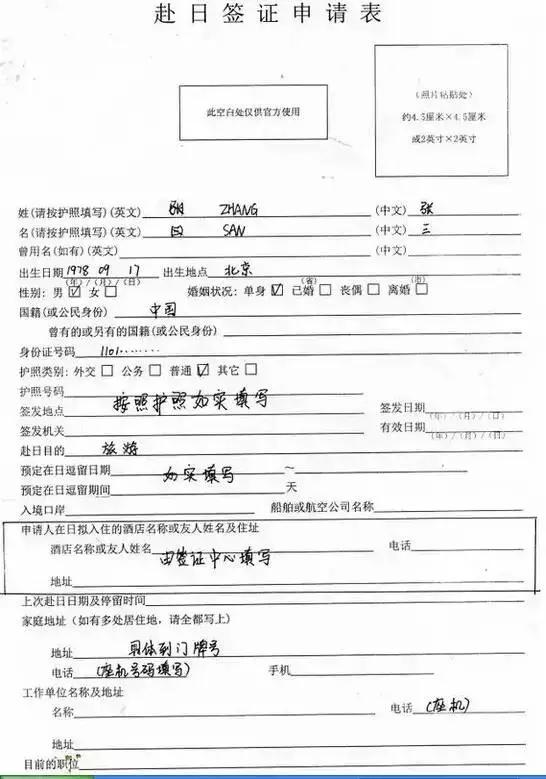 赴日签证申请表
此空白处仅供官方使用
(照片粘贴处)
约4.5厘米×4.5厘米
或2英寸×2英寸
姓(请按护照填写)(英文) ZHANG (中文) 张
名(请按护照填写)(英文) SAN (中文) 三
曾用名(如有)(英文) (中文)
出生日期 1978 09 17 出生地点 北京
(年)/(月)/(日) (省) (市)
性别: 男 ☑ 女 □ 婚姻状况: 单身 ☑ 已婚 □ 丧偶 □ 离婚 □
国籍(或公民身份) 中国
曾有的或另有的国籍(或公民身份)
身份证号码 1101........
护照类别: 外交 □ 公务 □ 普通 ☑ 其它 □
护照号码
按照护照如实填写
签发地点 签发日期
(年)/(月)/(日)
签发机关 有效日期
(年)/(月)/(日)
赴日目的 旅游
预定在日逗留日期 ~
如实填写
预定在日逗留期间 天
入境口岸 船舶或航空公司名称
申请人在日拟入住的酒店名称或友人姓名及住址
酒店名称或友人姓名 电话
由签证中心填写
地址
上次赴日日期及停留时间
家庭地址(如有多处居住地,请全都写上)
地址 具体到门牌号
电话 (座机号码填写) 手机
工作单位名称及地址
名称 电话 (座机)
地址
目前的职位